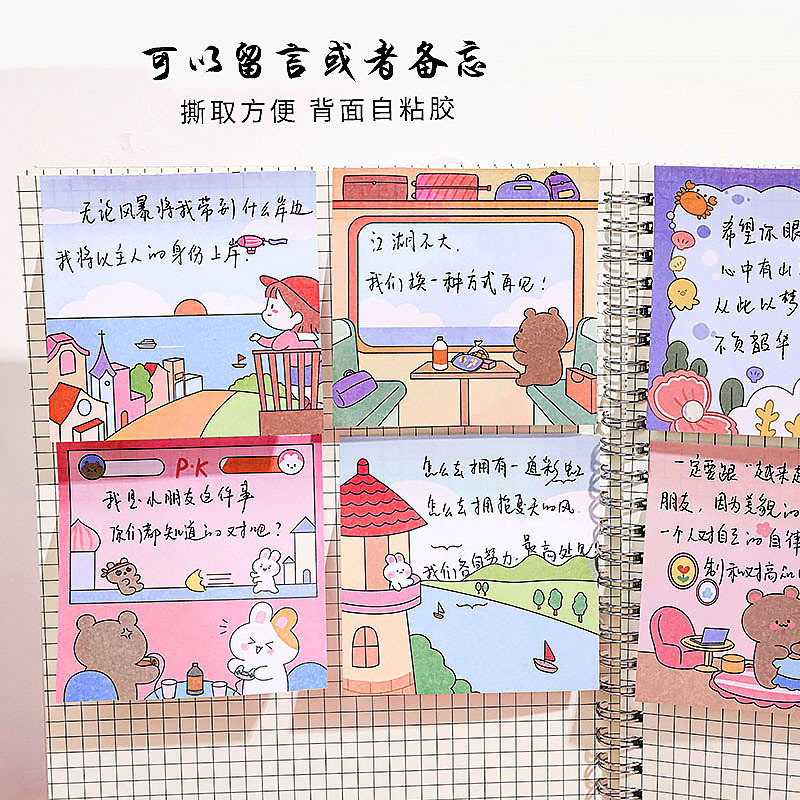 可以留言或者备忘
撕取方便 背面自粘胶
无论风暴将我带到什么岸边
我将以主人的身份上岸.
江湖不大,
我们换一种方式再见!
希望你眼
心中有山
从此以梦
不负韶华
P·K
我是小朋友这件事
你们都知道的对吧?
怎么去拥有一道彩虹
怎么去拥抱夏天的风
我们各自努力.最高处见
一定要跟"越来越
朋友,因为美貌的
一个人对自己的自律
制和对高